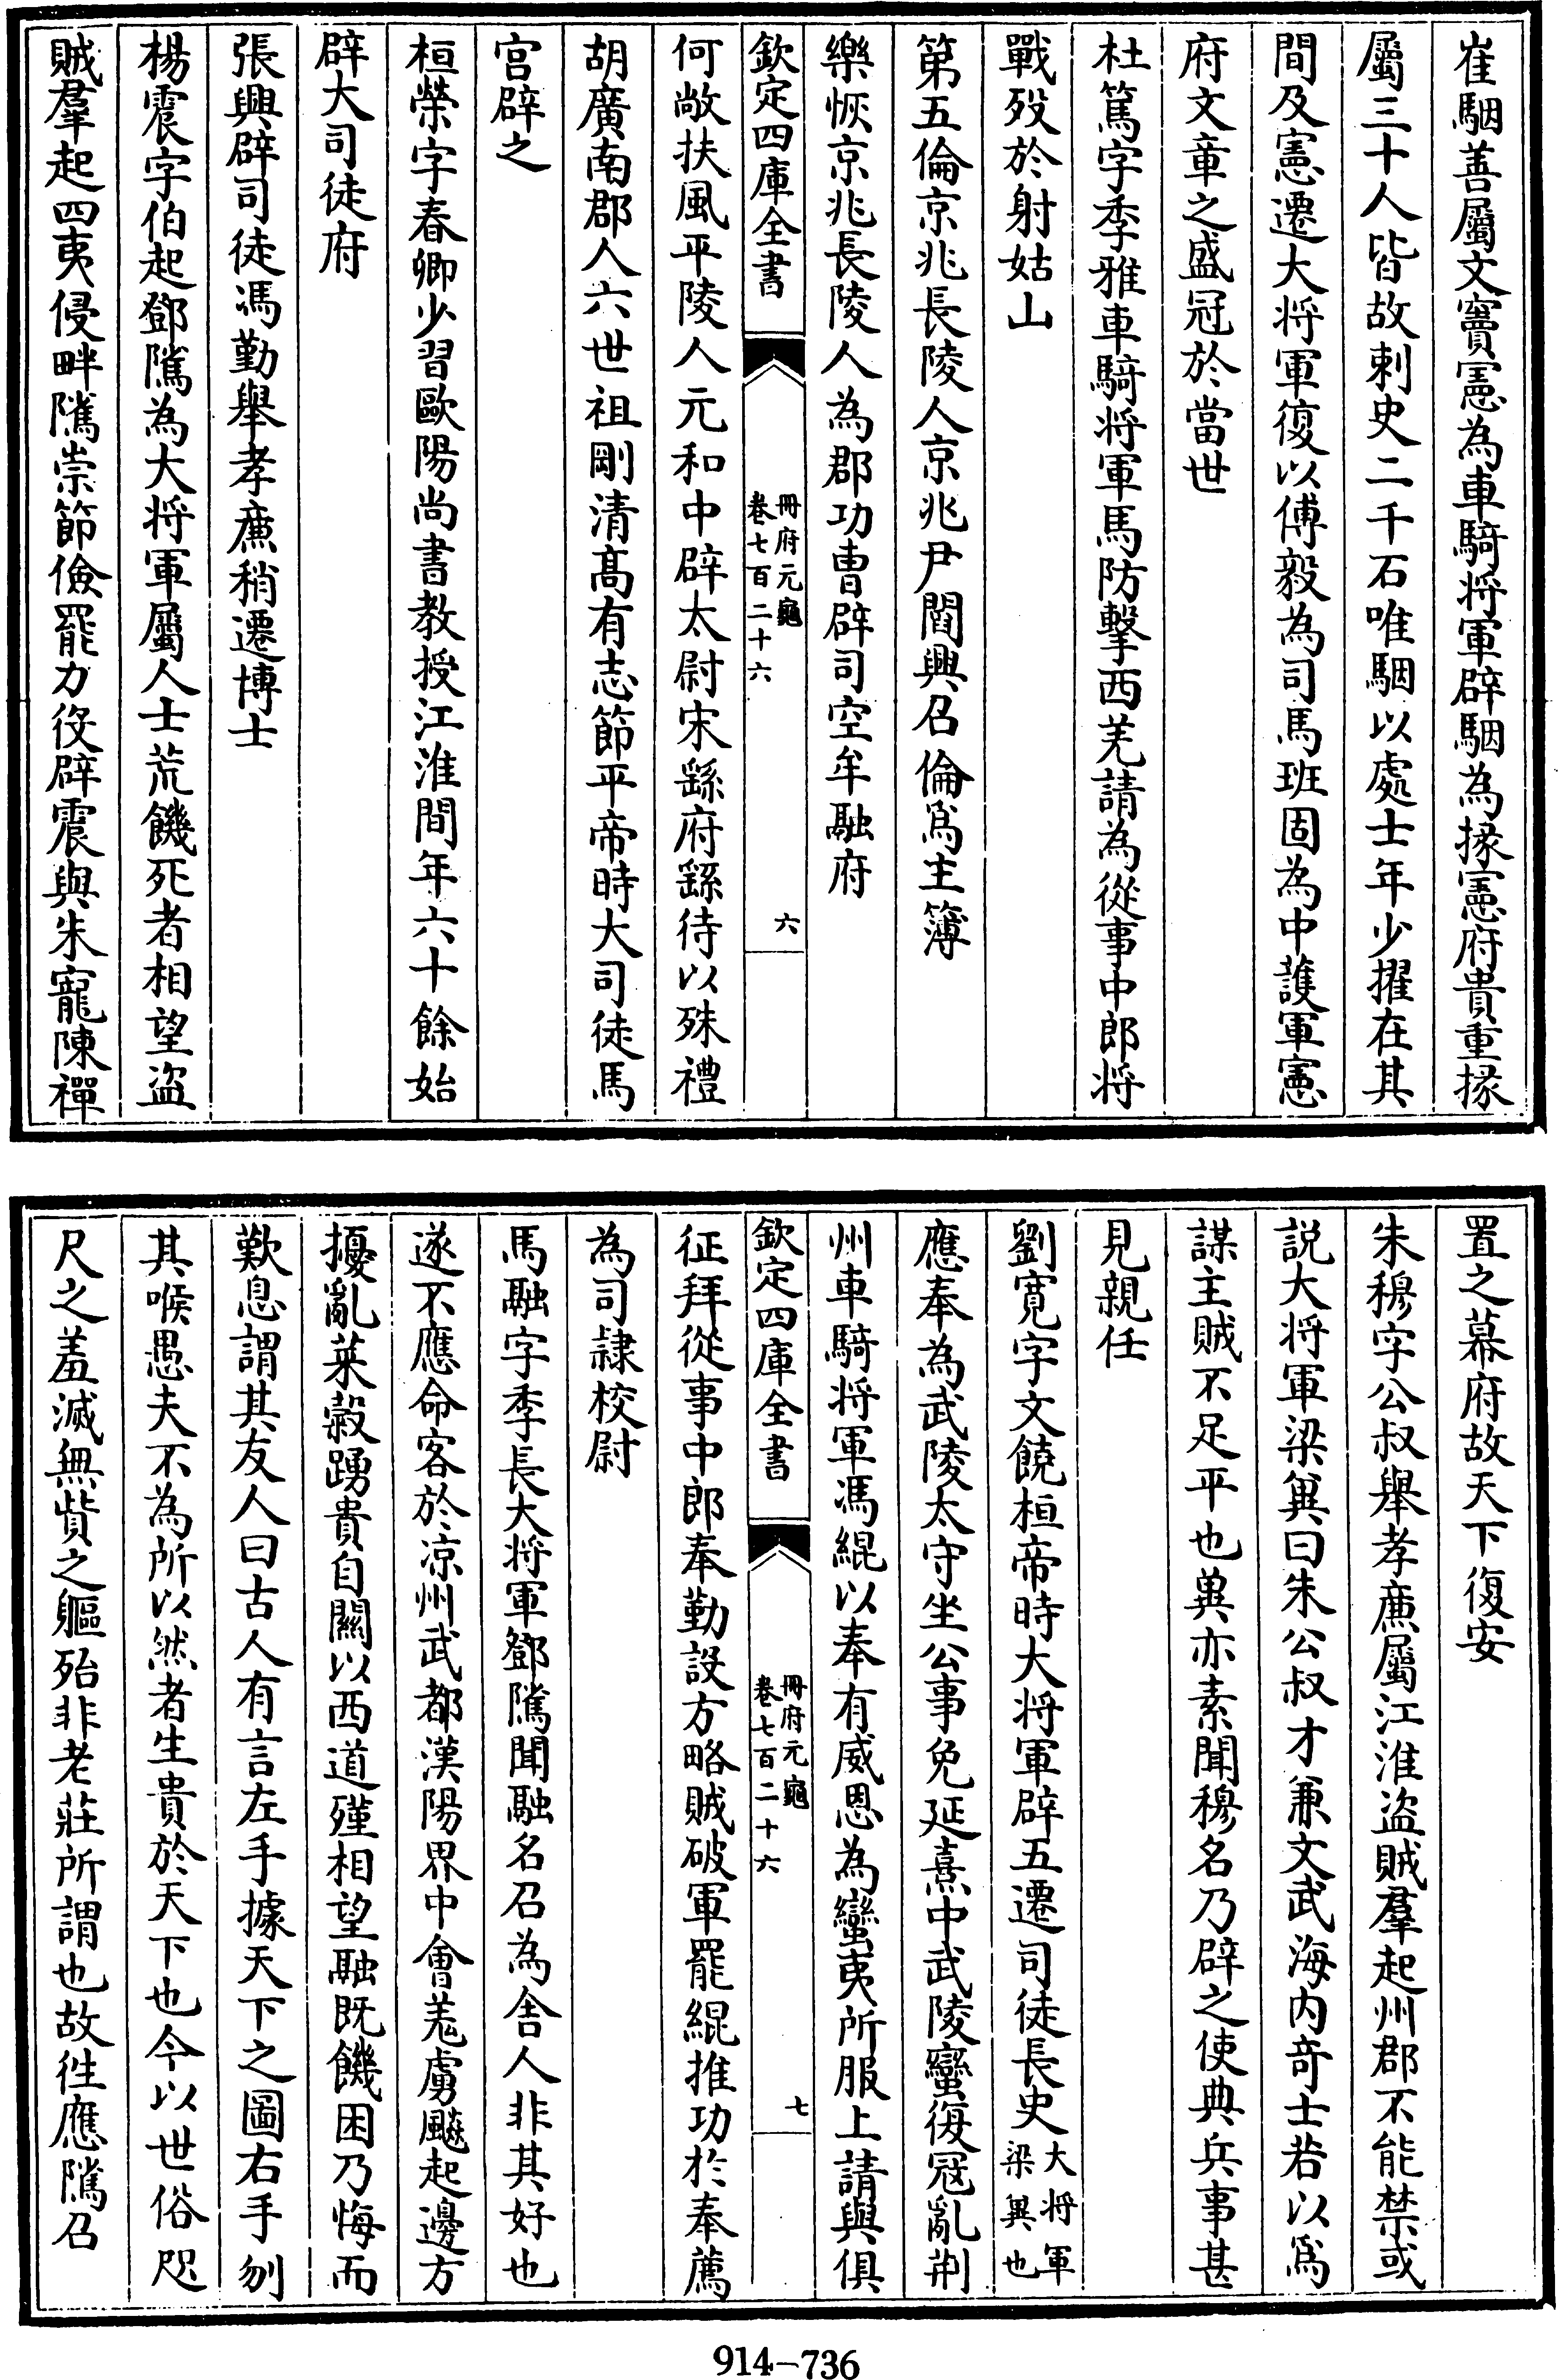 崔駰善屬文竇憲為車騎将軍辟駰為掾憲府貴重掾
屬三十人皆故刺史二千石唯駰以處士年少擢在其
間及憲遷大将軍復以傅毅為司馬班固為中護軍憲
府文章之盛冠於當世
杜篤字季雅車騎将軍馬防擊西羌請為從事中郎将
戰殁於射姑山
第五倫京兆長陵人京兆尹閻興召倫爲主簿
樂恢京兆長陵人為郡功曹辟司空牟融府
欽定四庫全書
冊府元龜
卷七百二十六
六
何敞扶風平陵人元和中辟太尉宋繇府繇待以殊禮
胡廣南郡人六世祖剛清髙有志節平帝時大司徒馬
宫辟之
桓榮字春卿少習歐陽尚書教授江淮間年六十餘始
辟大司徒府
張興辟司徒馮勤舉孝廉稍遷博士
楊震字伯起鄧隲為大将軍屬人士荒饑死者相望盗
賊羣起四夷侵畔隲崇節儉罷力役辟震與朱寵陳禪
置之幕府故天下復安
朱穆字公叔舉孝廉屬江淮盗賊羣起州郡不能禁或
説大将軍梁兾曰朱公叔才兼文武海内奇士若以爲
謀主賊不足平也兾亦素聞穆名乃辟之使典兵事甚
見親任
劉寛字文饒桓帝時大将軍辟五遷司徒長史大将軍梁兾也
應奉為武陵太守坐公事免延熹中武陵蠻復冦亂荆
州車騎将軍馮緄以奉有威恩為蠻夷所服上請與俱
欽定四庫全書
冊府元龜
卷七百二十六
七
征拜從事中郎奉勤設方略賊破軍罷緄推功於奉薦
為司隷校尉
馬融字季長大将軍鄧隲聞融名召為舍人非其好也
遂不應命客於凉州武都漢陽界中會羌虜飈起邊方
擾亂菜榖踴貴自關以西道殣相望融既饑困乃悔而
歎息謂其友人曰古人有言左手據天下之圖右手刎
其喉愚夫不為所以然者生貴於天下也今以世俗咫
尺之羞滅無貲之軀殆非老莊所謂也故往應隲召
914-736